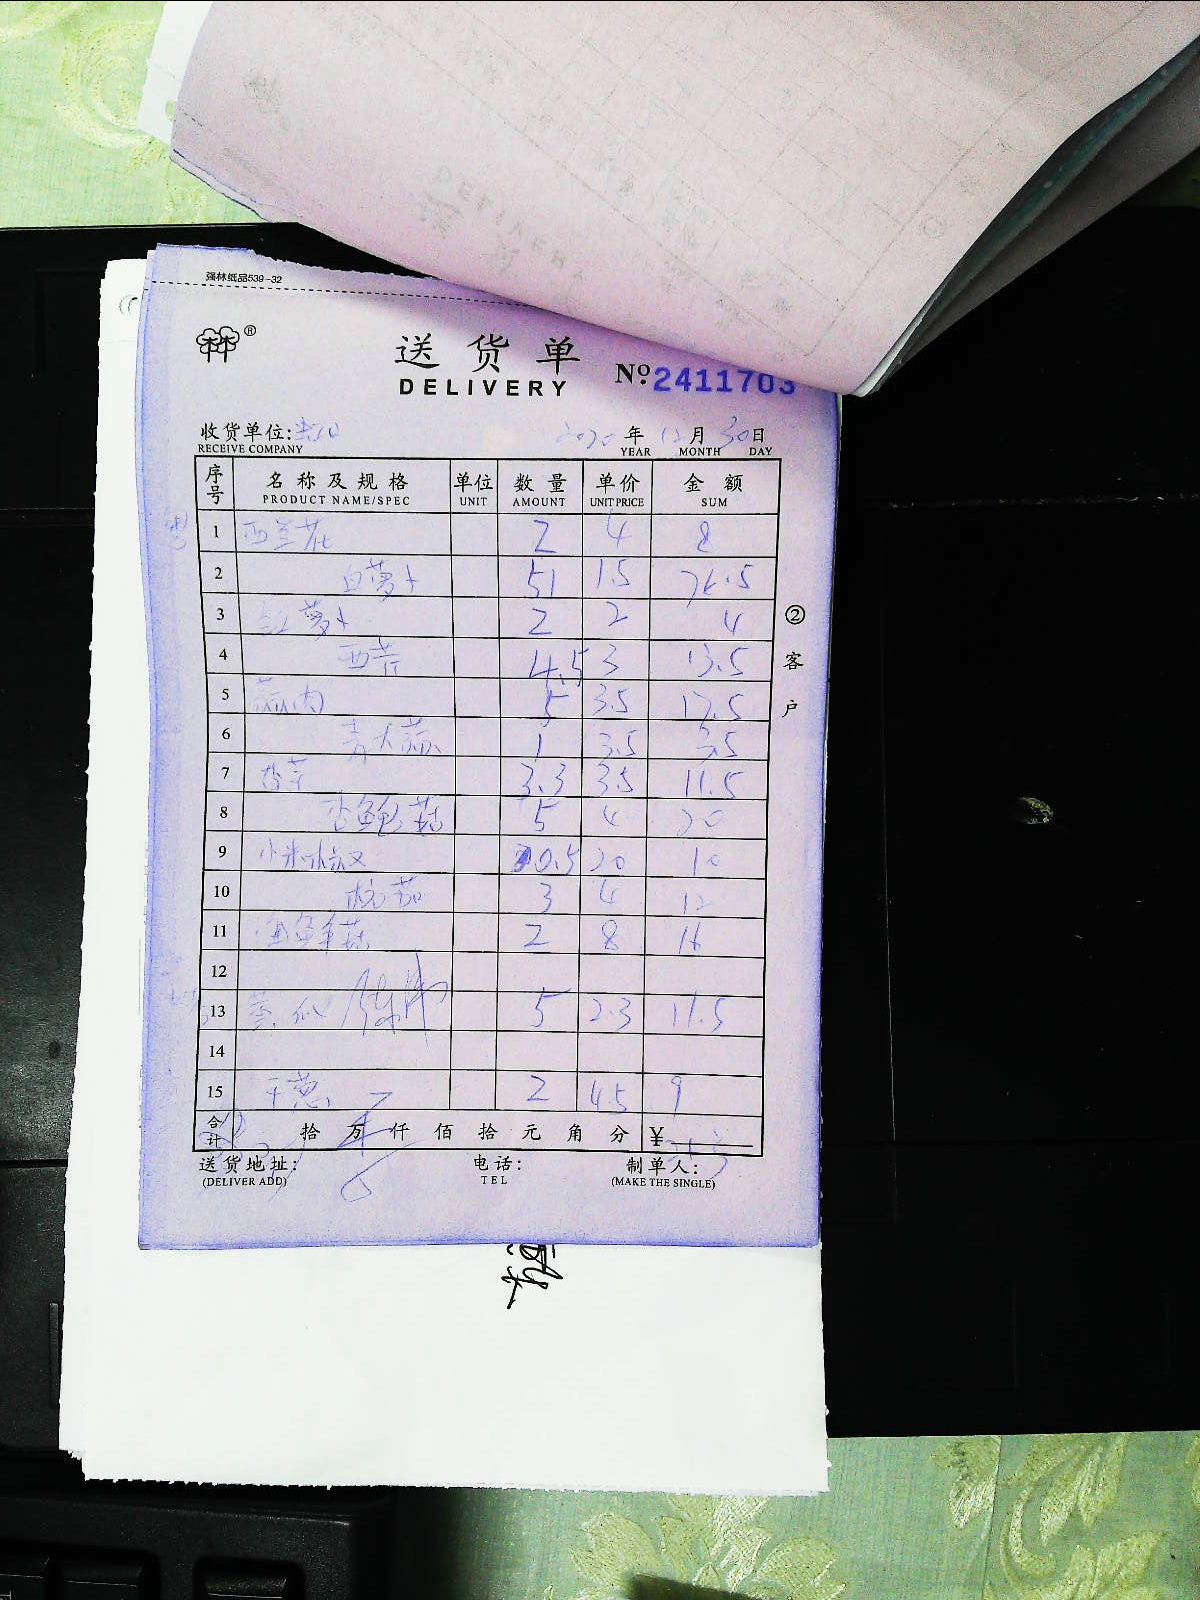 强林纸品539-32
®
送货单
DELIVERY
Nº 2411703
收货单位: 2020年12月30日
RECEIVE COMPANY YEAR MONTH DAY
序号 名称及规格 单位 数量 单价 金额
PRODUCT NAME/SPEC UNIT AMOUNT UNIT PRICE SUM
1 西兰花 2 4 8
2 白萝卜 51 1.5 76.5
3 红萝卜 2 2 4
4 西芹 4.5 3 13.5
5 蒜肉 5 3.5 17.5
6 青大蒜 1 3.5 3.5
7 3.3 3.5 11.5
8 杏鲍菇 5 4 20
9 小米椒 0.5 20 10
10 茄 3 4 12
11 海鲜菇 2 8 16
12
13 5 2.3 11.5
14
15 干葱 2 4.5 9
合计 拾万仟佰拾元角分 ¥
送货地址: 电话: 制单人:
(DELIVER ADD) TEL (MAKE THE SINGLE)
②客户